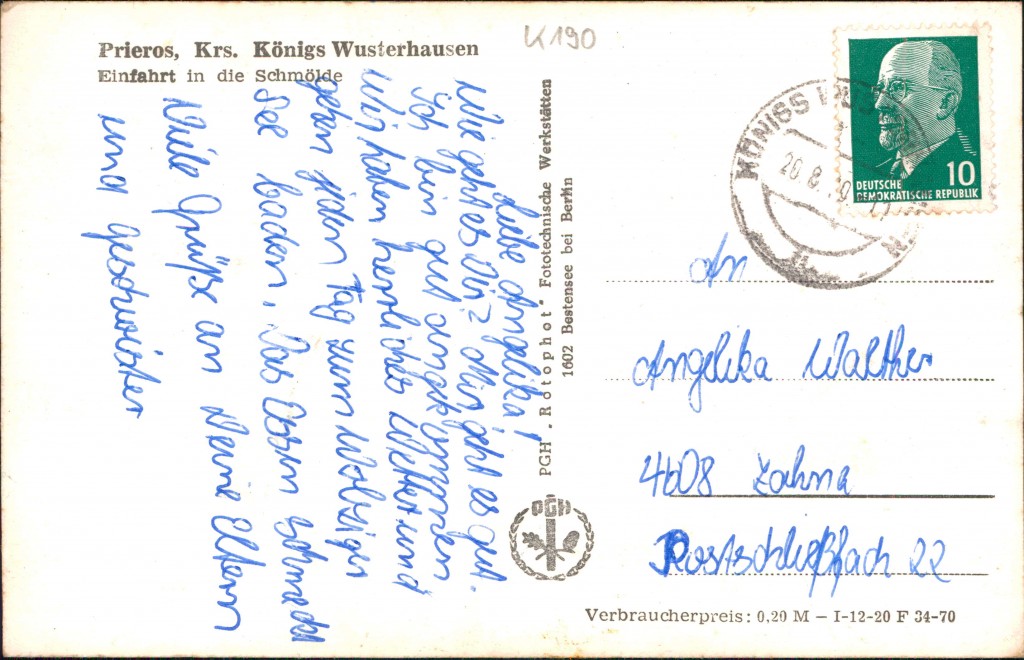 Prieros, Krs. Königs Wusterhausen
Einfahrt in die Schmölde
K190
Liebe Angelika!
Wie geht es Dir? Mir geht es gut.
Ich bin gut angekommen
Wir haben herrliches Wetter und
gehen jeden Tag zum Wolziger
See baden. Das Essen schmeckt
Viele Grüße an Deine Eltern
und Geschwister
PGH „Rotophot“ Fototechnische Werkstätten
1602 Bestensee bei Berlin
PGH
KÖNIGS WUS
20.8.
10
DEUTSCHE
DEMOKRATISCHE REPUBLIK
An
Angelika Walther
4608 Zahna
Postschließfach 22
Verbraucherpreis: 0,20 M — I-12-20 F 34-70